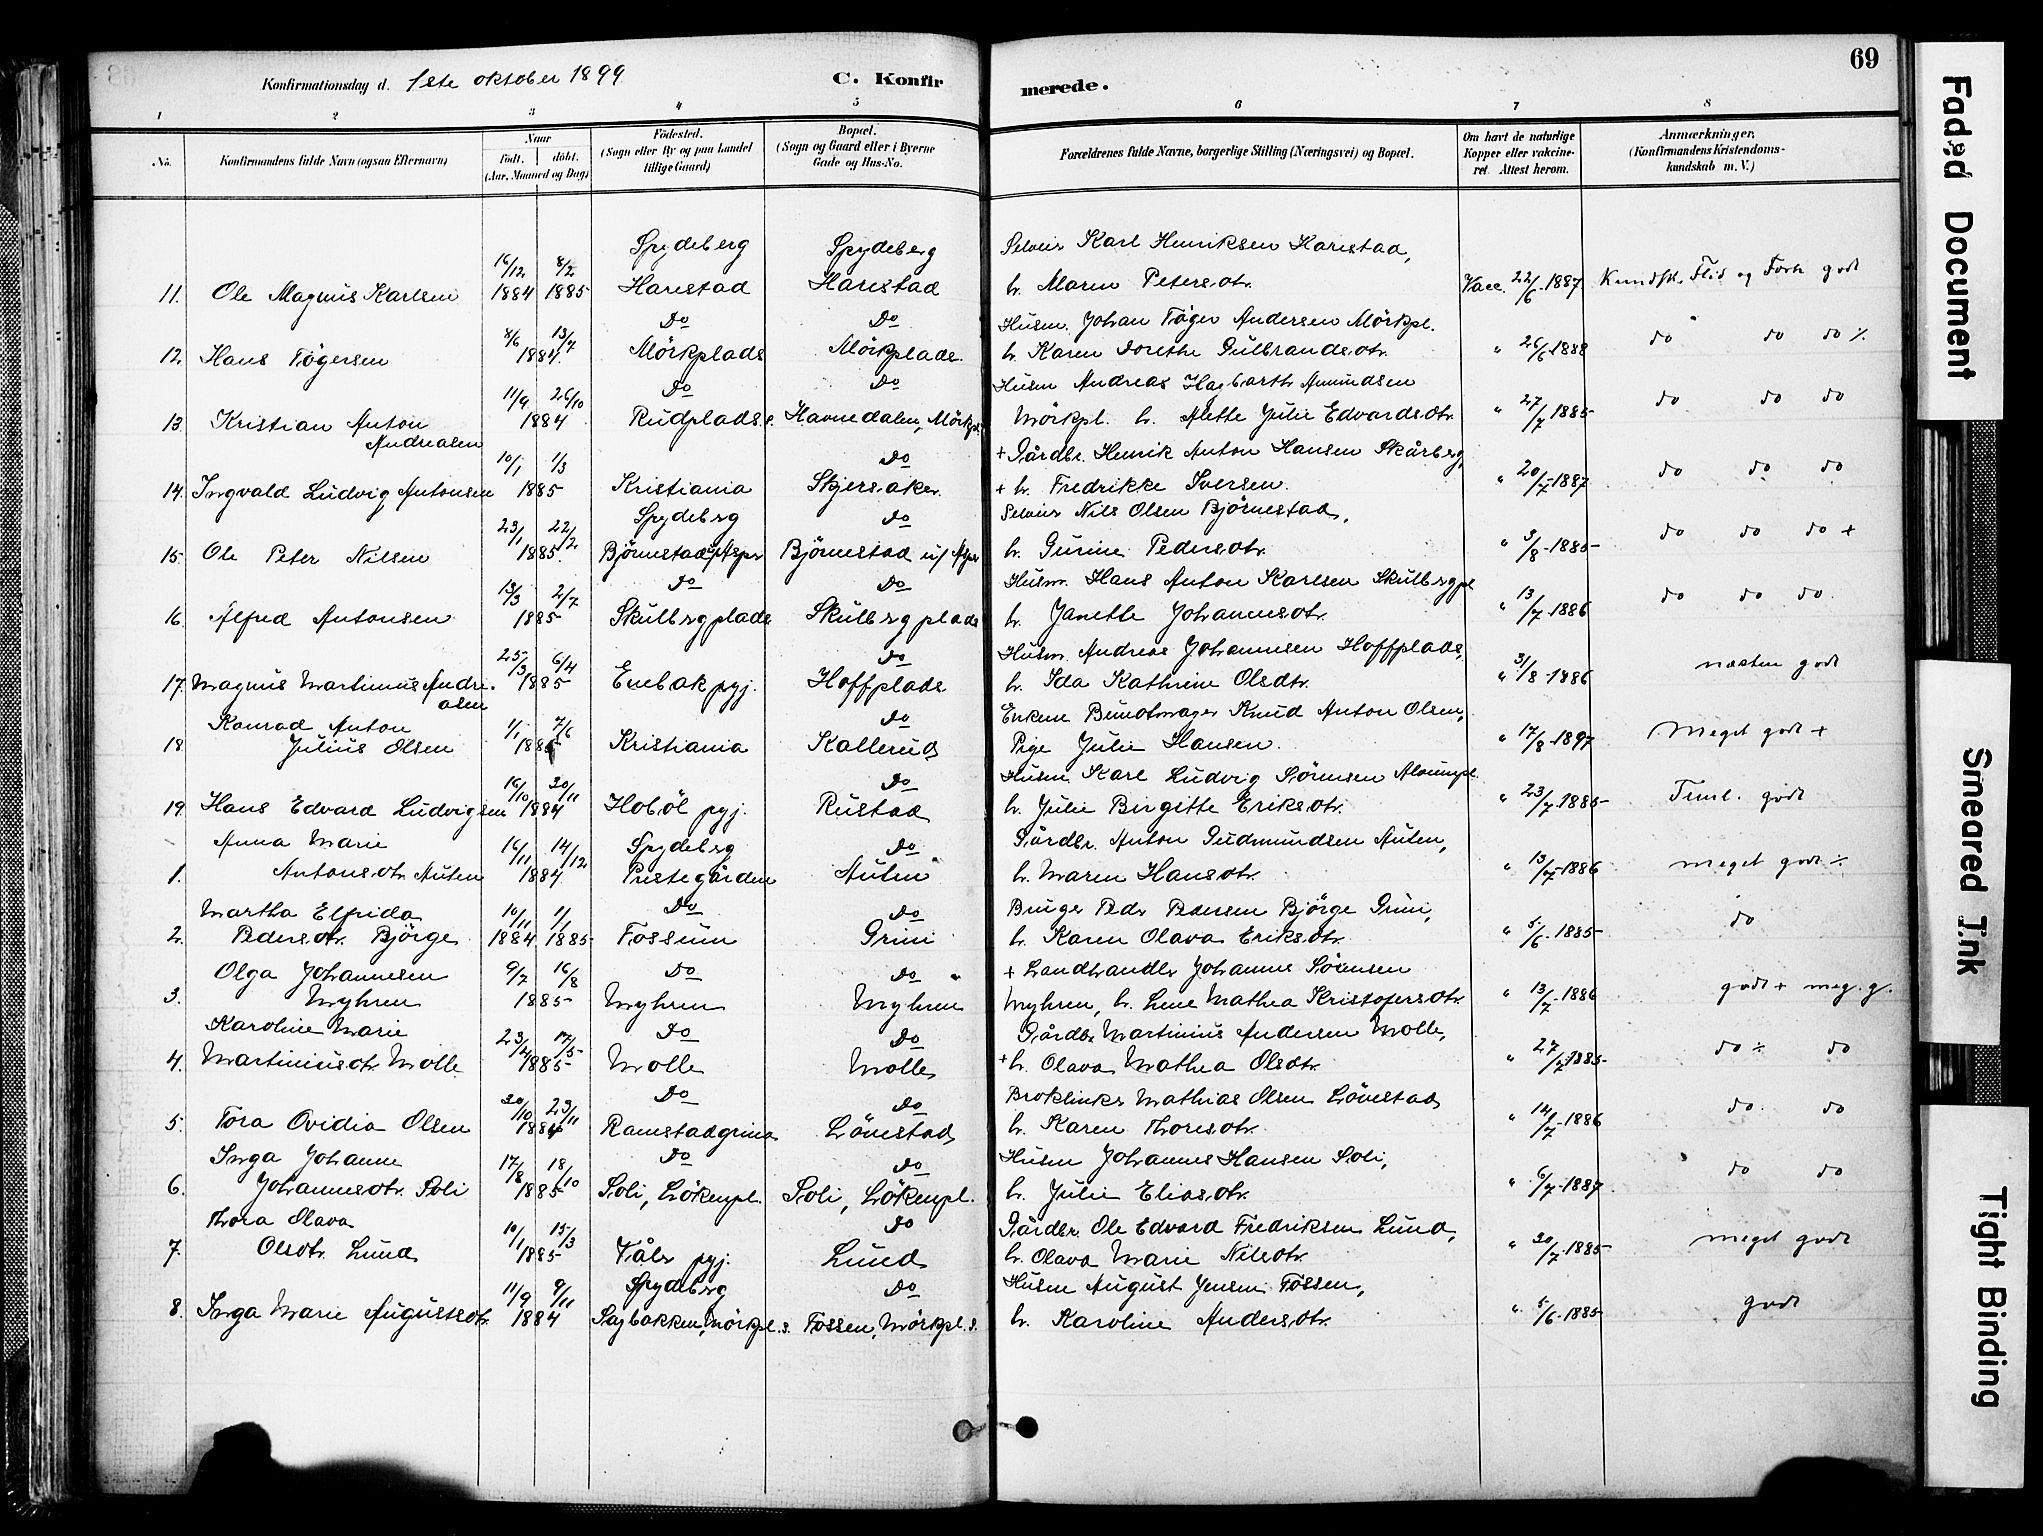 69
Konfirmationsdag d. 1ste oktober 1899
C. Konfirmerede.
1 2 3 4 5 6 7 8
No.
Konfirmandens fulde Navn (ogsaa Efternavn)
Naar
födt. döbt.
(Aar, Maaned og Dag)
Födested.
(Sogn eller By og paa Landet tillige Gaard)
Bopæl.
(Sogn og Gaard eller i Byerne Gade og Hus-No.
Forældrenes fulde Navne, borgerlige Stilling (Næringsvei) og Bopæl.
Om havt de naturlige Kopper eller vakcineret. Attest herom.
Anmærkninger.
(Konfirmandens Kristendomskundskab m. V.)
11. Ole Magnus Karlsen 16/12 1884 8/2 1885 Spydeberg Harestad Spydeberg Harestad
Selveier Karl Henriksen Harestad,
h. Maren Petersdtr. Vacc. 22/6-1887 Kundsk. Flid og Forh godt
12. Hans Tøgersen 8/6 13/7 1884. Do Mörkplads Do Mörkplads.
Husm. Johan Tøger Andersen Mörkpl.
h. Karen Dorethe Gulbrandsdtr. " 26/6-1888 do do do %
13. Kristian Anton Andreasen 11/9 26/10 1884 Do Rudplads. Do Havnedalen, Mörkpl.
Husm Andreas Hagbarth Amundsen
Mörkpl. h. Alette Julie Edvardsdtr. " 27/7 1885 do do do
14. Ingvald Ludvig Antonsen 10/1 1/3 1885 Kristiania Do Skjersaker.
+ Gårdbr. Henrik Anton Hansen Skårberg,
+ h. Fredrikke Iversen. " 20/7-1887 do do do
15. Ole Peter Nilsen 23/1 22/2 1885. Spydebrg Björnestad u/Aspr Do Björnestad u/ Aspr
Selveier Nils Olsen Björnestad,
h. Gurine Pedersdtr. " 3/8-1885 do do do +
16. Alfred Antonsen 13/3 2/7 1885 Do Skulbrgplads Do Skulbrgplads
Husm. Hans Anton Karlsen Skulbrgpl
h. Janette Johannesdtr. " 13/7-1886 do do do.
17. Magnus Martinius Andreasen 25/3 6/4 1885 Enebak pgj. Do Hoffplads
Husm. Andreas Johannesen Hoffplads,
h. Ida Kathrine Olsdtr. " 31/8-1886 næsten godt
18 Konrad Anton Julius Olsen 1/1 7/6 1885 Kristiania Do Kallerud
Enkem Buntmager Knud Anton Olsen,
Pige Julie Hansen. " 17/8-1897 Meget godt +
19. Hans Edvard Ludvigsen 16/10 30/11 1884 Hobøl pgj. Do Rustad
Husm Karl Ludvig Sörensen
h. Julie Birgitte Eriksdtr. " 23/7-1885 Teml. godt
1. Anna Marie Antonsdtr. Auten 16/11 14/12 1884 Spydebrg Prestegården Do Auten
Gårdbr. Anton Gudmundsen Auten,
h. Maren Hansdtr. " 13/7-1886 meget godt %
2. Martha Elfrida Pedersdtr. Björge 10/11 1884 1/1 1885 Do Fossum Do Grini
Bruger Pedr Pedersen Björge Grini,
h. Karen Olava Eriksdtr. " 5/6-1885 do
3. Olga Johannesen Myhren 9/7 16/8 1885 Do Myhren Do Myhren
+ Landhandlr Johannes Sörensen
Myhren, h. Lene Mathea Kristofersdtr. " 13/7-1886 godt + meg. g.
4. Karoline Marie Martiniusdtr. Molle. 23/4 17/5 1885 Do Molle Do Molle
Gårdbr Martinius Andersen Molle,
+ h. Olava Mathea Olsdtr. " 27/7-1885 do % do
5. Tora Ovidia Olsen 30/10 23/11 1884 Do Ramstadgrina Do Lönestad
Mathias Olsen Lönestad
h. Karen Thoresdtr. " 14/7-1886 do. do
6. Inga Johanne Johannesdtr. Soli 17/8 18/10 1885 Do Soli, Lökenpl. Do Soli, Lökenpl.
Husm Johannes Hansen Soli,
h. Julie Eliasdtr. " 6/7-1887 do do
7. Thora Olava Olsdtr. Lund 10/1 15/3 1885 Våler pgj. Do Lund
Gårdbr. Ole Edvard Fredriksen Lund,
h. Olava Marie Nilsdtr. " 30/7-1885 meget godt
8. Inga Marie Augustsdtr. 11/9 9/11 1884 Spydebrg Sagbakken, Mörkpl. s. Do Fossen, Mörkpl. s.
Husm August Jensen Fossen,
h. Karoline Andersdtr. " 5/6-1885 godt
Faded Document
Smeared Ink
Tight Binding